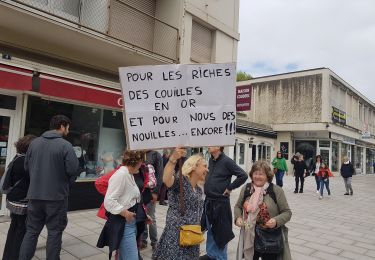 POUR LES RICHES
DES COUILLES
EN OR
ET POUR NOUS DES
NOUILLES... ENCORE!!!